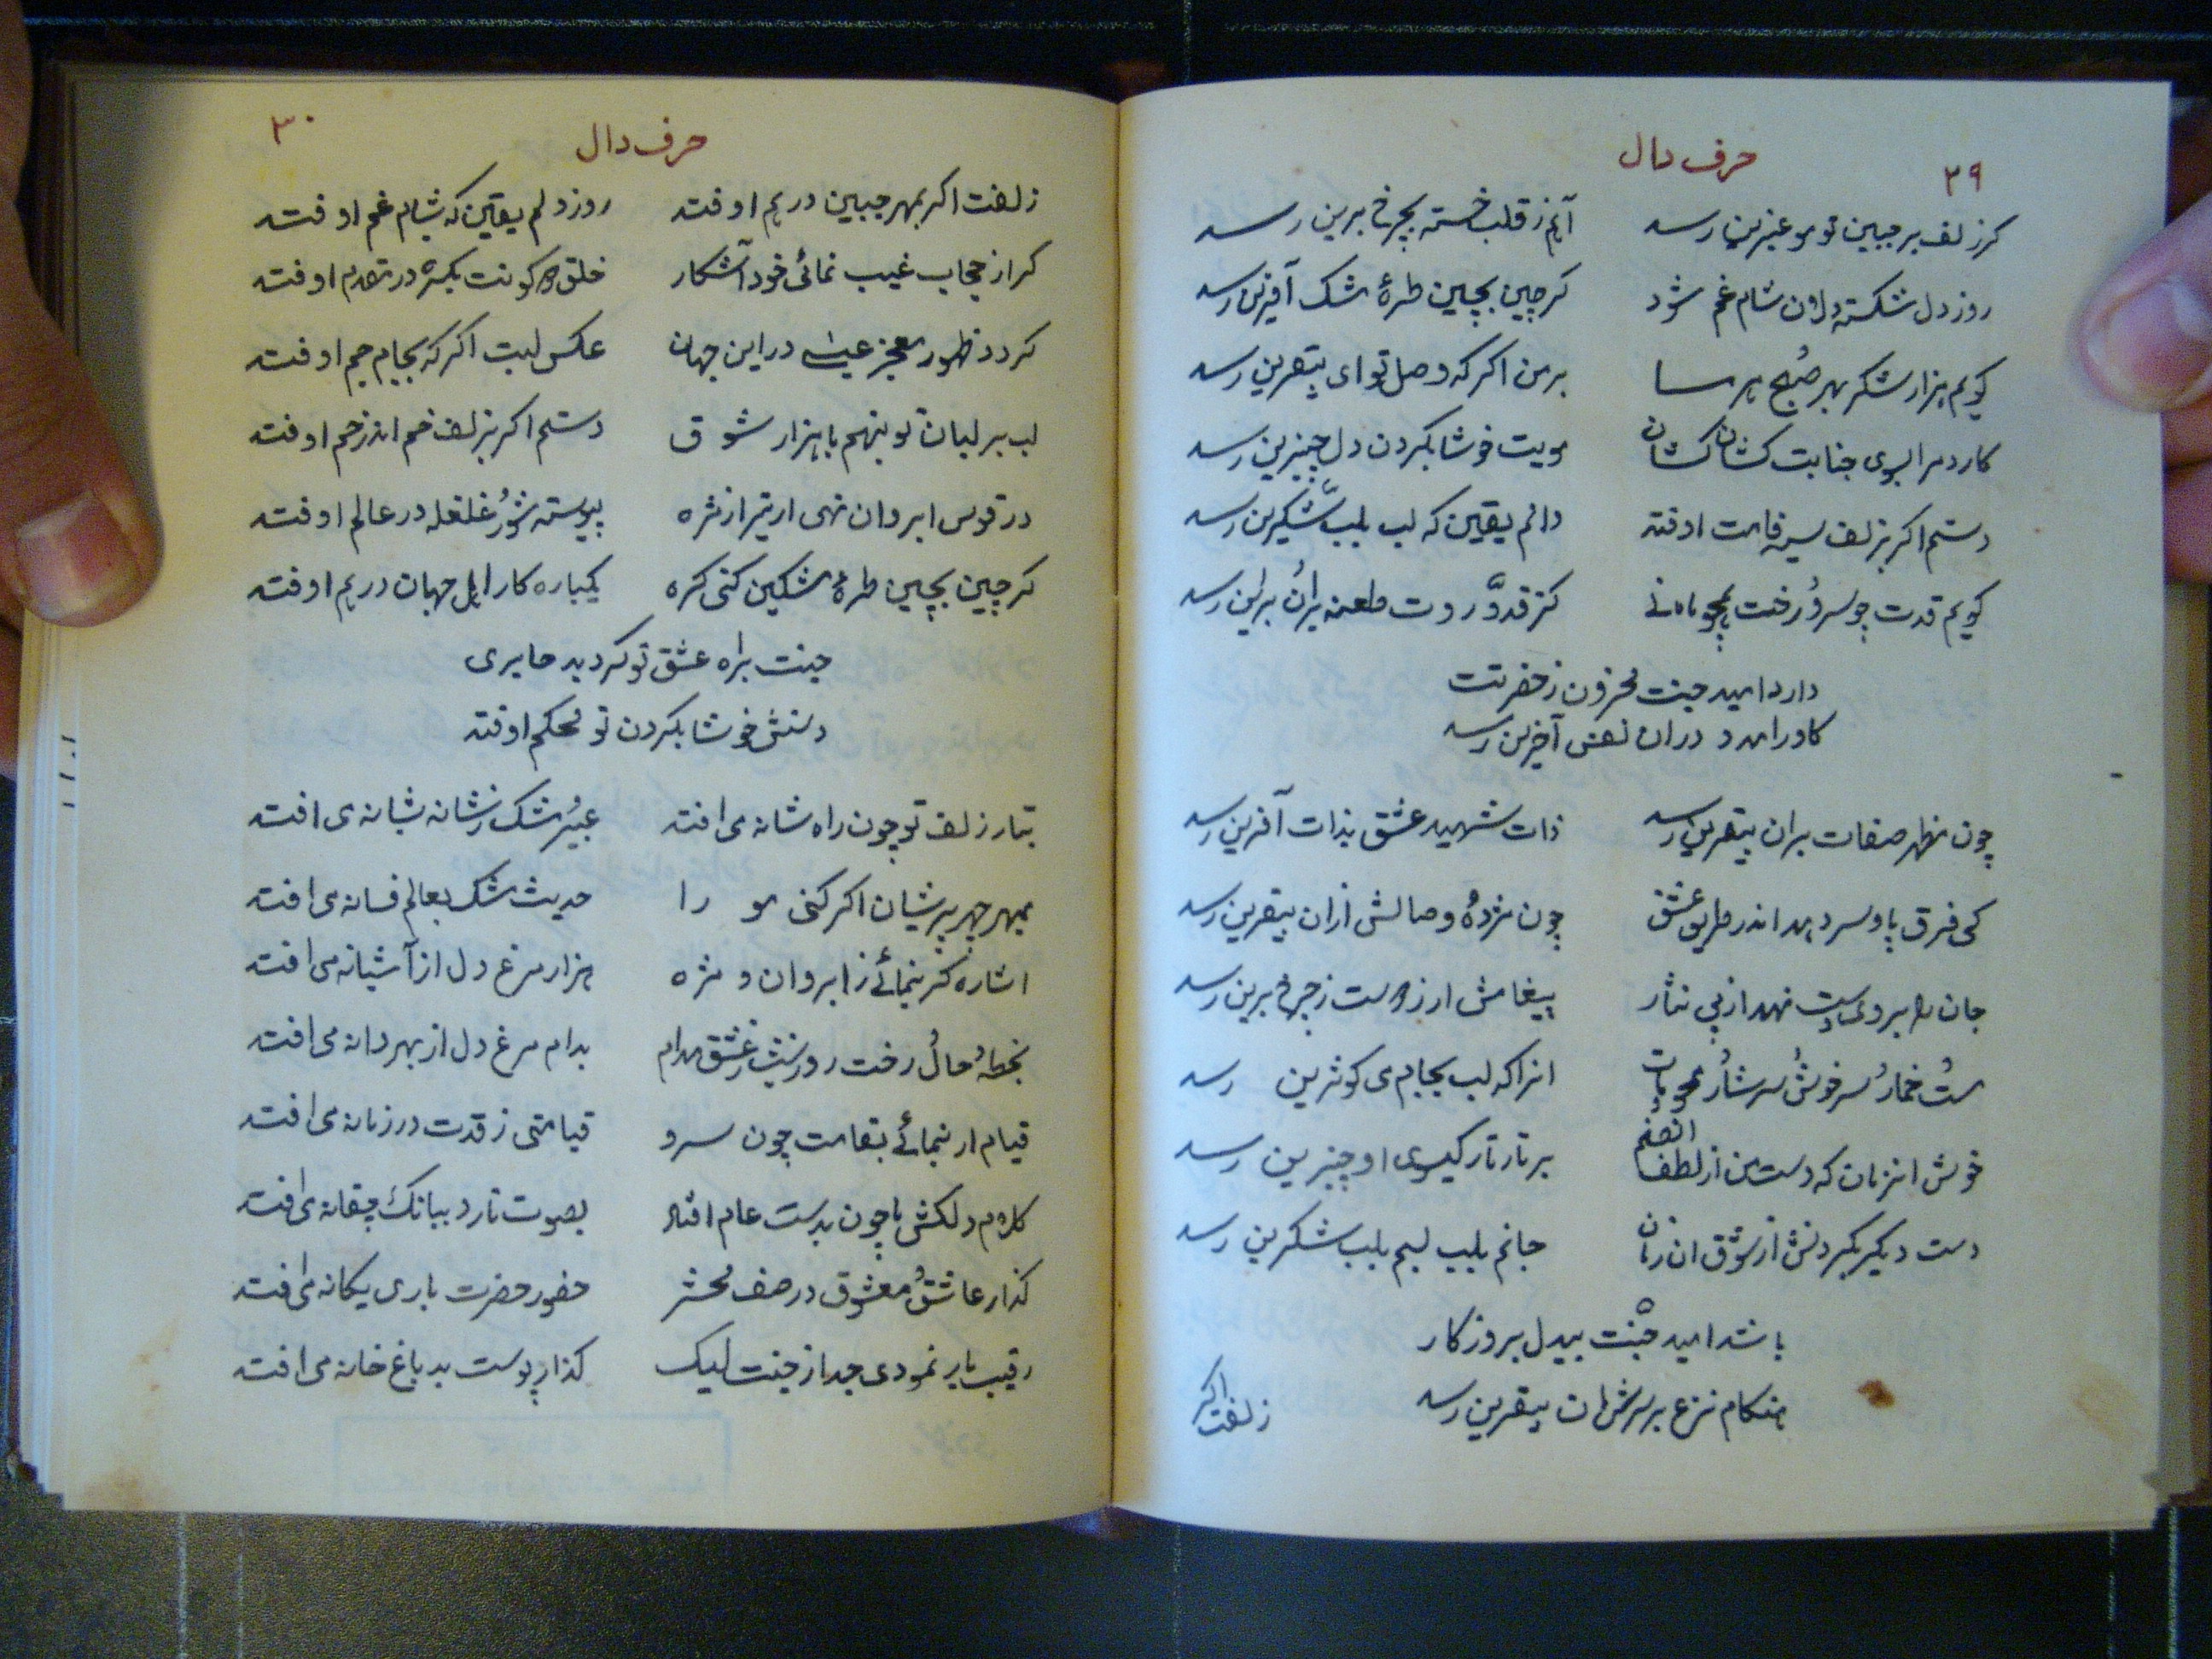 ۲۹
حرف دال
کر زلف بر جبین تو مو عنبرین رسد آهم ز قلب خسته بچرخ برین رسد
روز دل شکسته دلان شام غم شود کر چین بچین طرهٔ مشک آفرین رسد
کویم هزار شکر بهر صبح هر مسا بر من اکر که وصل تو ای بیقرین رسد
کارد مرا بسوی جنابت کشان کشان مویت خوشا بکردن دل چنبرین رسد
دستم اکر بزلف سیه فامت اوفتد دانم یقین که لب بلب شکرین رسد
کویم قدت چو سرو رخت همچو ماه نی کز قد و روت طعنه بران بر این رسد
دارد امید جنت محزون ز حضرتت
کاو را مدد در ان نفس آخرین رسد
چون مظهر صفات بران بیقرین رسد ذات شهید عشق بذات آفرین رسد
کی فرق پا و سر دهد اندر طریق عشق چون مژدهٔ وصالش از ان بیقرین رسد
جان را بر وی نهد از پی نثار پیغامش ار ز دوست ز چرخ برین رسد
مست خمار سرخوش سرشار محو مات انرا که لب بجام می کوثرین رسد
خوش انزمان که دست من از لطف انصنم بر تار تار کیسوی او چنبرین رسد
دست دیکر بکردنش از شوق ان زمان جانم بلب لبم بلب شکرین رسد
باشد امید جنت بیدل بروزکار
هنکام نزع بر سرش ان بیقرین رسد
زلفت اکر
۳۰
حرف دال
زلفت اکر بمهر جبین در هم اوفتد روز دلم یقین که بشام غم اوفتد
کر از حجاب غیب نمائی خود آشکار خلق دو کونت یکسره در مقدم اوفتد
کردد ظهور معجز عیسی در این جهان عکس لبت اکر که بجام جم اوفتد
لب بر لبان تو بنهم با هزار شوق دستم اکر بزلف خم اندر خم اوفتد
در قوس ابروان نهی ار تیر از مژه پیوسته شور غلغله در عالم اوفتد
کر چین بچین طرهٔ مشکین کنی کره یکباره کار اهل جهان در هم اوفتد
جنت براه عشق تو کردید حایری
دستش خوشا بکردن تو محکم اوفتد
بتار زلف تو چون راه شانه می افتد عبیر مشک ز شانه بشانه می افتد
بمهر چهر پریشان اکر کنی مو را حدیث مشک بعالم فسانه می افتد
اشاره کر بنمائی ز ابروان و مژه هزار مرغ دل از آشیانه می افتد
بخط و خال رخت روز شب ز عشق مدام بدام مرغ دل از بهر دانه می افتد
قیام ار بنمائی بقامت چون سرو قیامتی ز قدت در زمانه می افتد
کلام دلکش ما چون بدست عام افتاد بصوت تار و ببانک چغانه می افتد
کذار عاشق و معشوق در صف محشر حضور حضرت باری یکانه می افتد
رقیب یار نمودی جدا ز جنت لیک کذار پوست بدباغ خانه می افتد